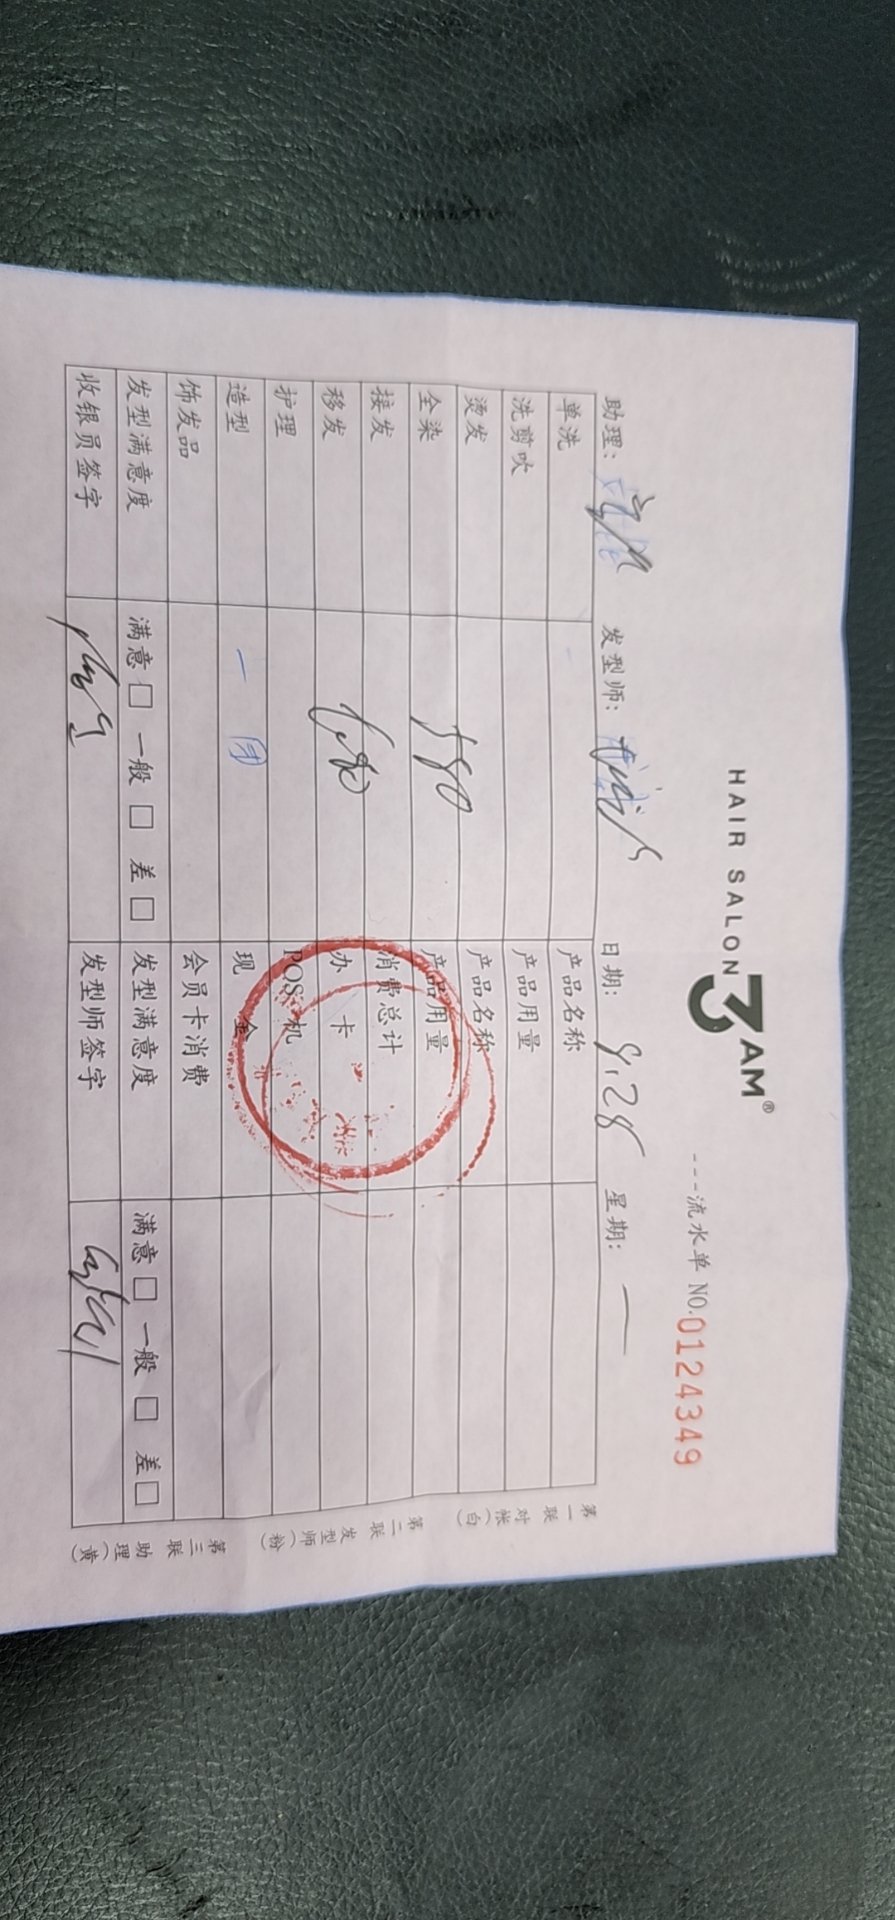 HAIR SALON 3AM®
---流水单 NO.0124349
助理： 发型师： 日期：9.28 星期：一
单洗 产品名称
洗剪吹 产品用量
烫发 产品名称
全染 580 产品用量
接发 消费总计
移发 办卡
护理 POS机
造型 一 团 现金
饰发品 会员卡消费
发型满意度 满意 □ 一般 □ 差 □ 发型满意度 满意 □ 一般 □ 差 □
收银员签字 发型师签字
第一联 对帐（白）
第二联 发型师（粉）
第三联 助理（黄）